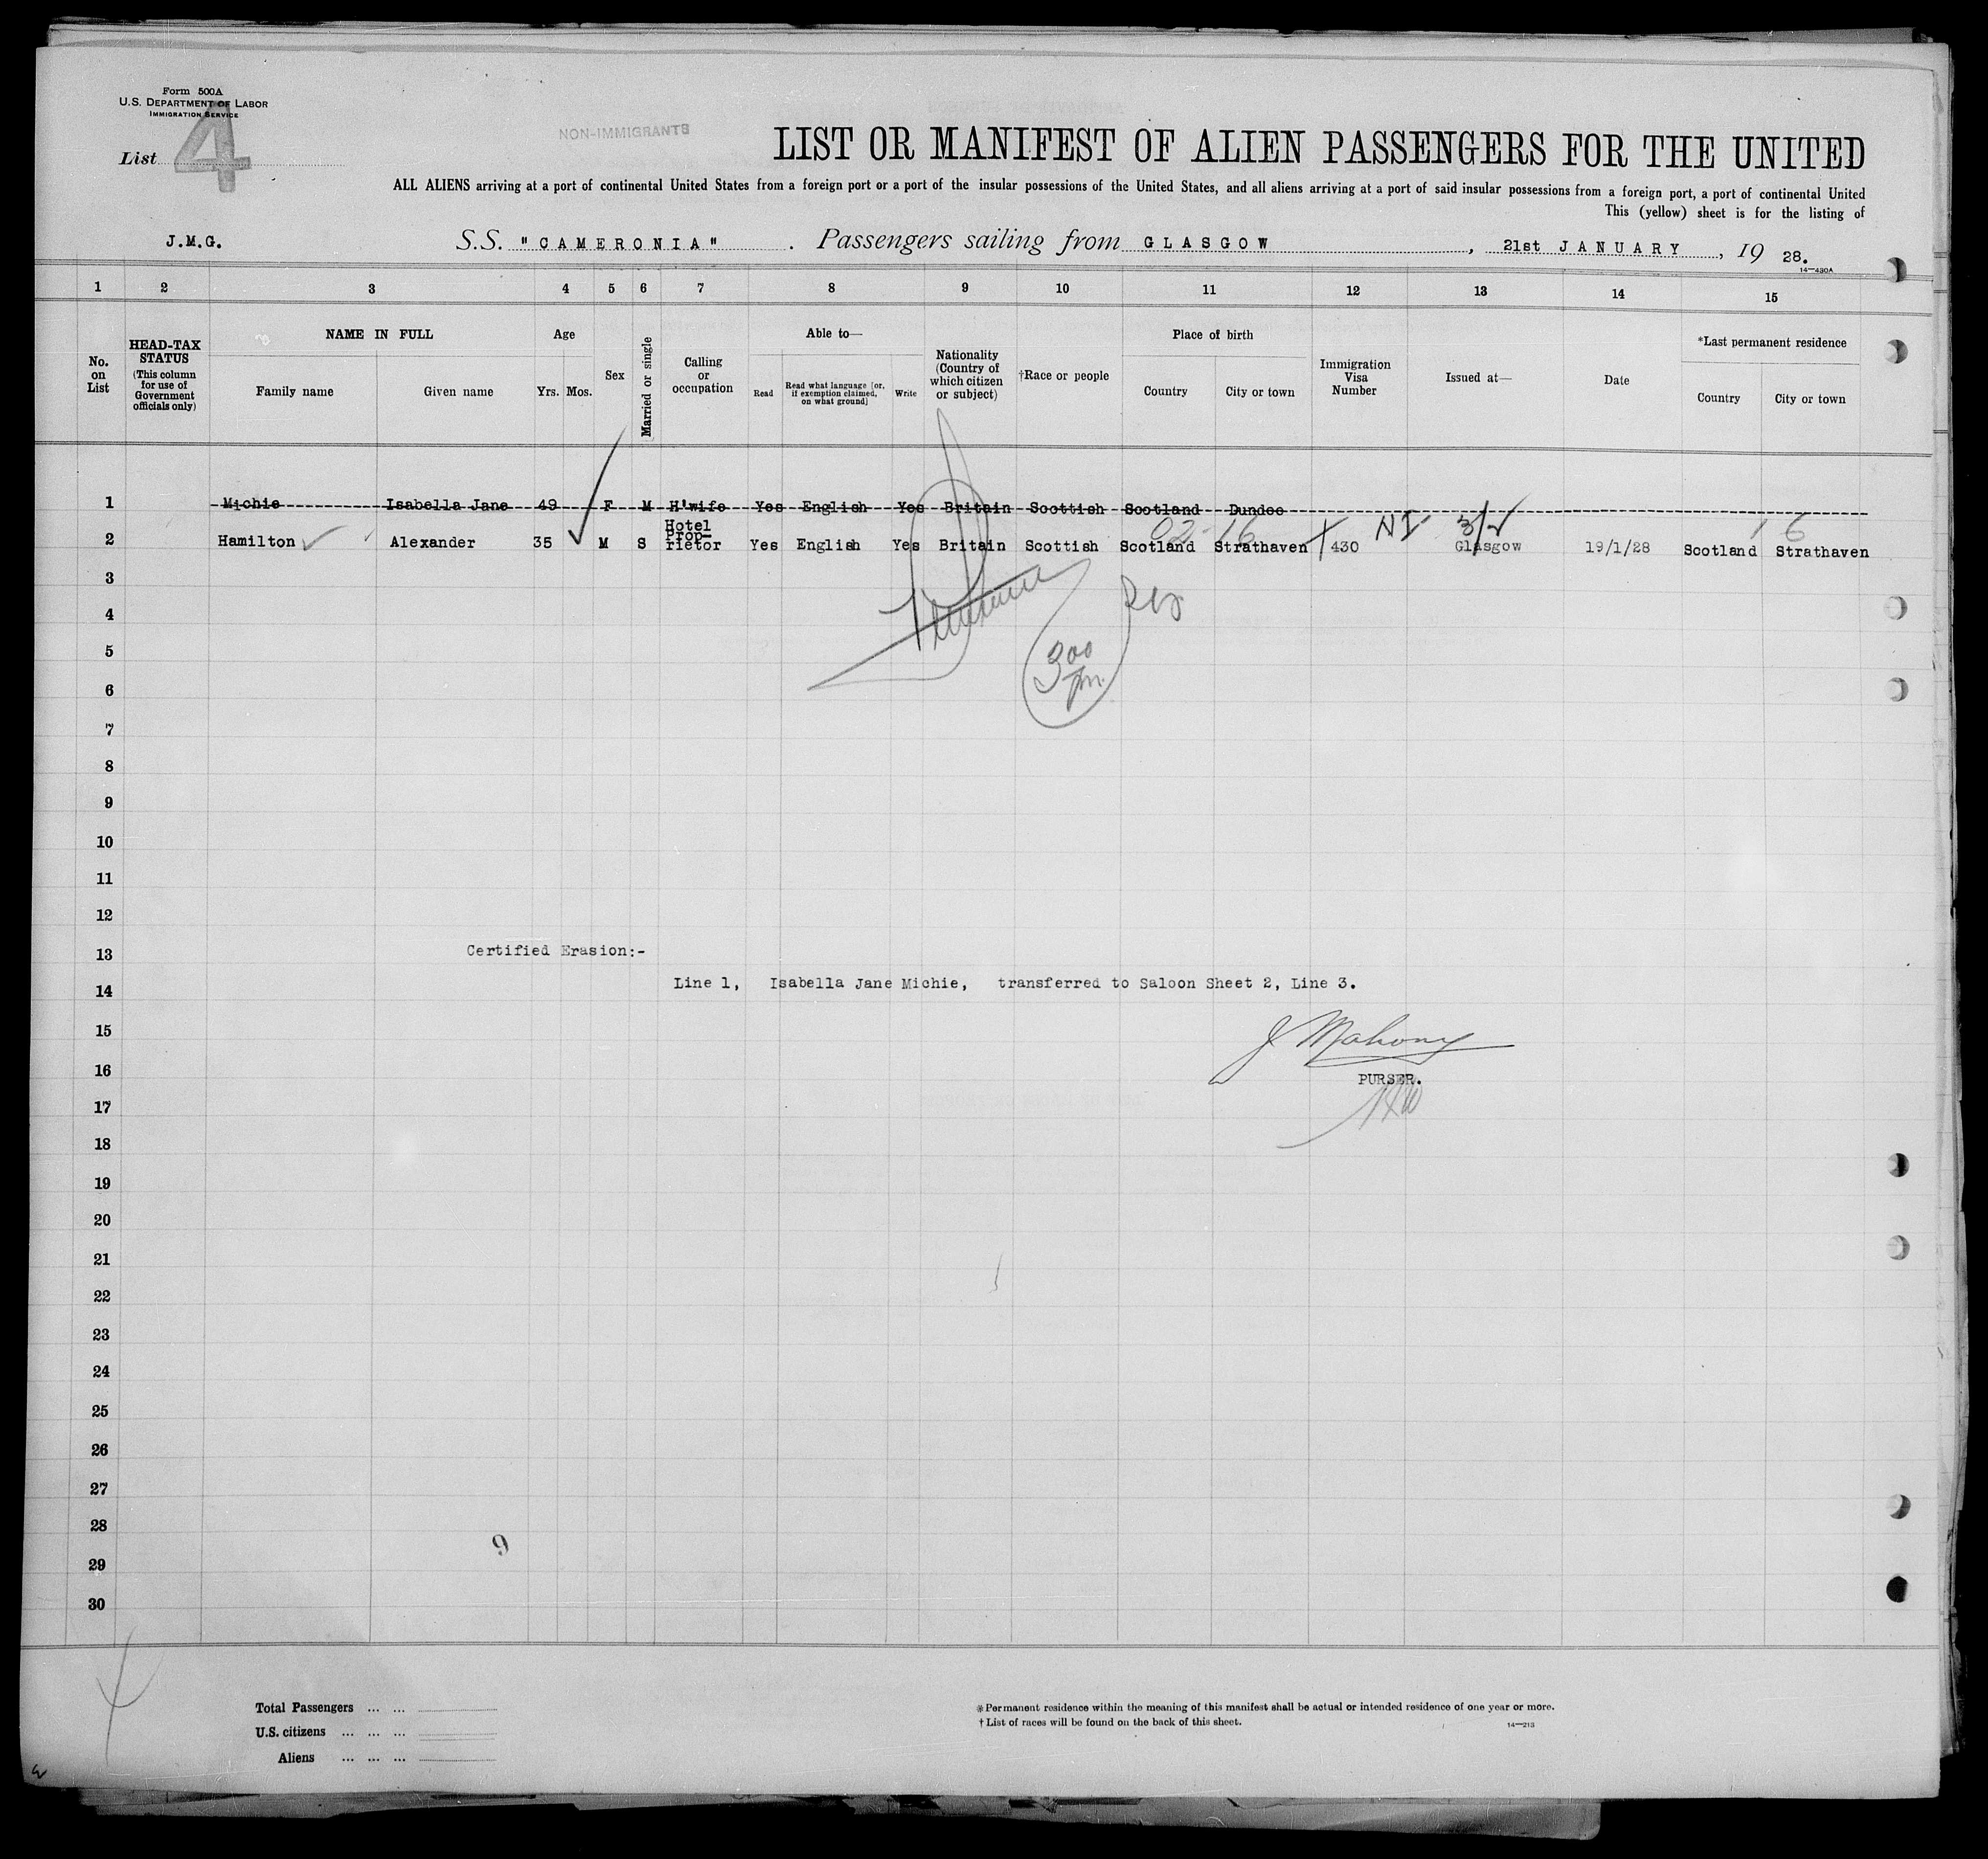 Form 500A
U.S. DEPARTMENT OF LABOR
IMMIGRATION SERVICE
List 4
NON-IMMIGRANTS
LIST OR MANIFEST OF ALIEN PASSENGERS FOR THE UNITED
ALL ALIENS arriving at a port of continental United States from a foreign port or a port of the insular possessions of the United States, and all aliens arriving at a port of said insular possessions from a foreign port, a port of continental United
This (yellow) sheet is for the listing of
J.M.G.
S.S. "CAMERONIA" . Passengers sailing from GLASGOW, 21st JANUARY, 19 28.
14—430A
1 2 3 4 5 6 7 8 9 10 11 12 13 14 15
No. on List
HEAD-TAX STATUS
(This column for use of Government officials only)
NAME IN FULL
Family name Given name
Age
Yrs. Mos.
Sex
Married or single
Calling or occupation
Able to—
Read
Read what language [or, if exemption claimed, on what ground]
Write
Nationality (Country of which citizen or subject)
†Race or people
Place of birth
Country City or town
Immigration Visa Number
Issued at—
Date
*Last permanent residence
Country City or town
1 Michie Isabella Jane 49 F M H'wife Yes English Yes Britain Scottish Scotland Dundee
02-16 NI 3/2 1 6
2 Hamilton Alexander 35 M S Hotel Prop-rietor Yes English Yes Britain Scottish Scotland Strathaven 430 Glasgow 19/1/28 Scotland Strathaven
3
4
5
300 pm
6
7
8
9
10
11
12
13 Certified Erasion:-
14 Line 1, Isabella Jane Michie, transferred to Saloon Sheet 2, Line 3.
15 J Mahony
16 PURSER.
17
18
19
20
21
22
23
24
25
26
27
28
9
29
30
Total Passengers ... ...
U.S. citizens ... ... ...
Aliens ... ... ...
*Permanent residence within the meaning of this manifest shall be actual or intended residence of one year or more.
†List of races will be found on the back of this sheet.
14—213